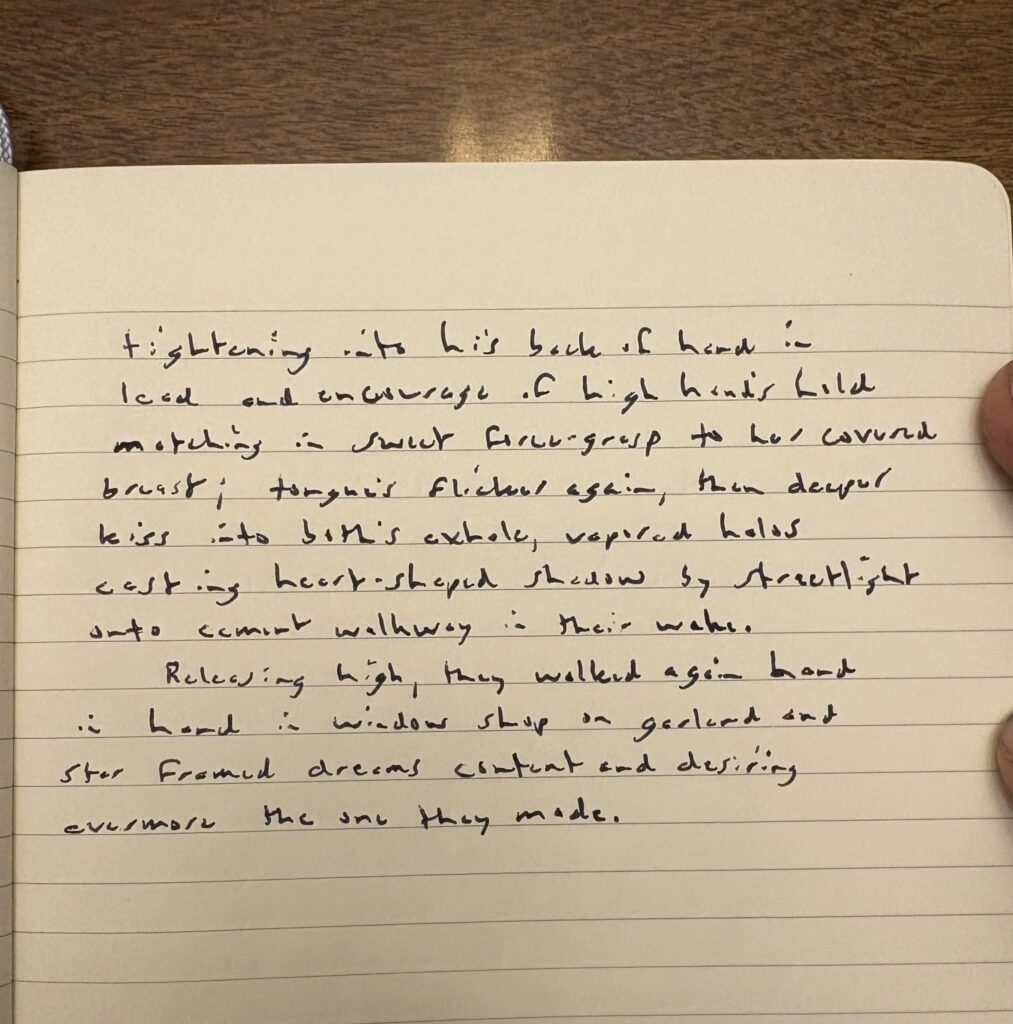 tightening into his back of hand in
lead and encourage of high hand's hold
matching in sweet force-grasp to her covered
breast; tongue's flicker again, then deeper
kiss into both's exhale, vapored halos
casting heart-shaped shadow by streetlight
onto cement walkway in their wake.
Releasing high, they walked again hand
in hand in window shop on garland and
star framed dreams content and desiring
evermore the one they made.